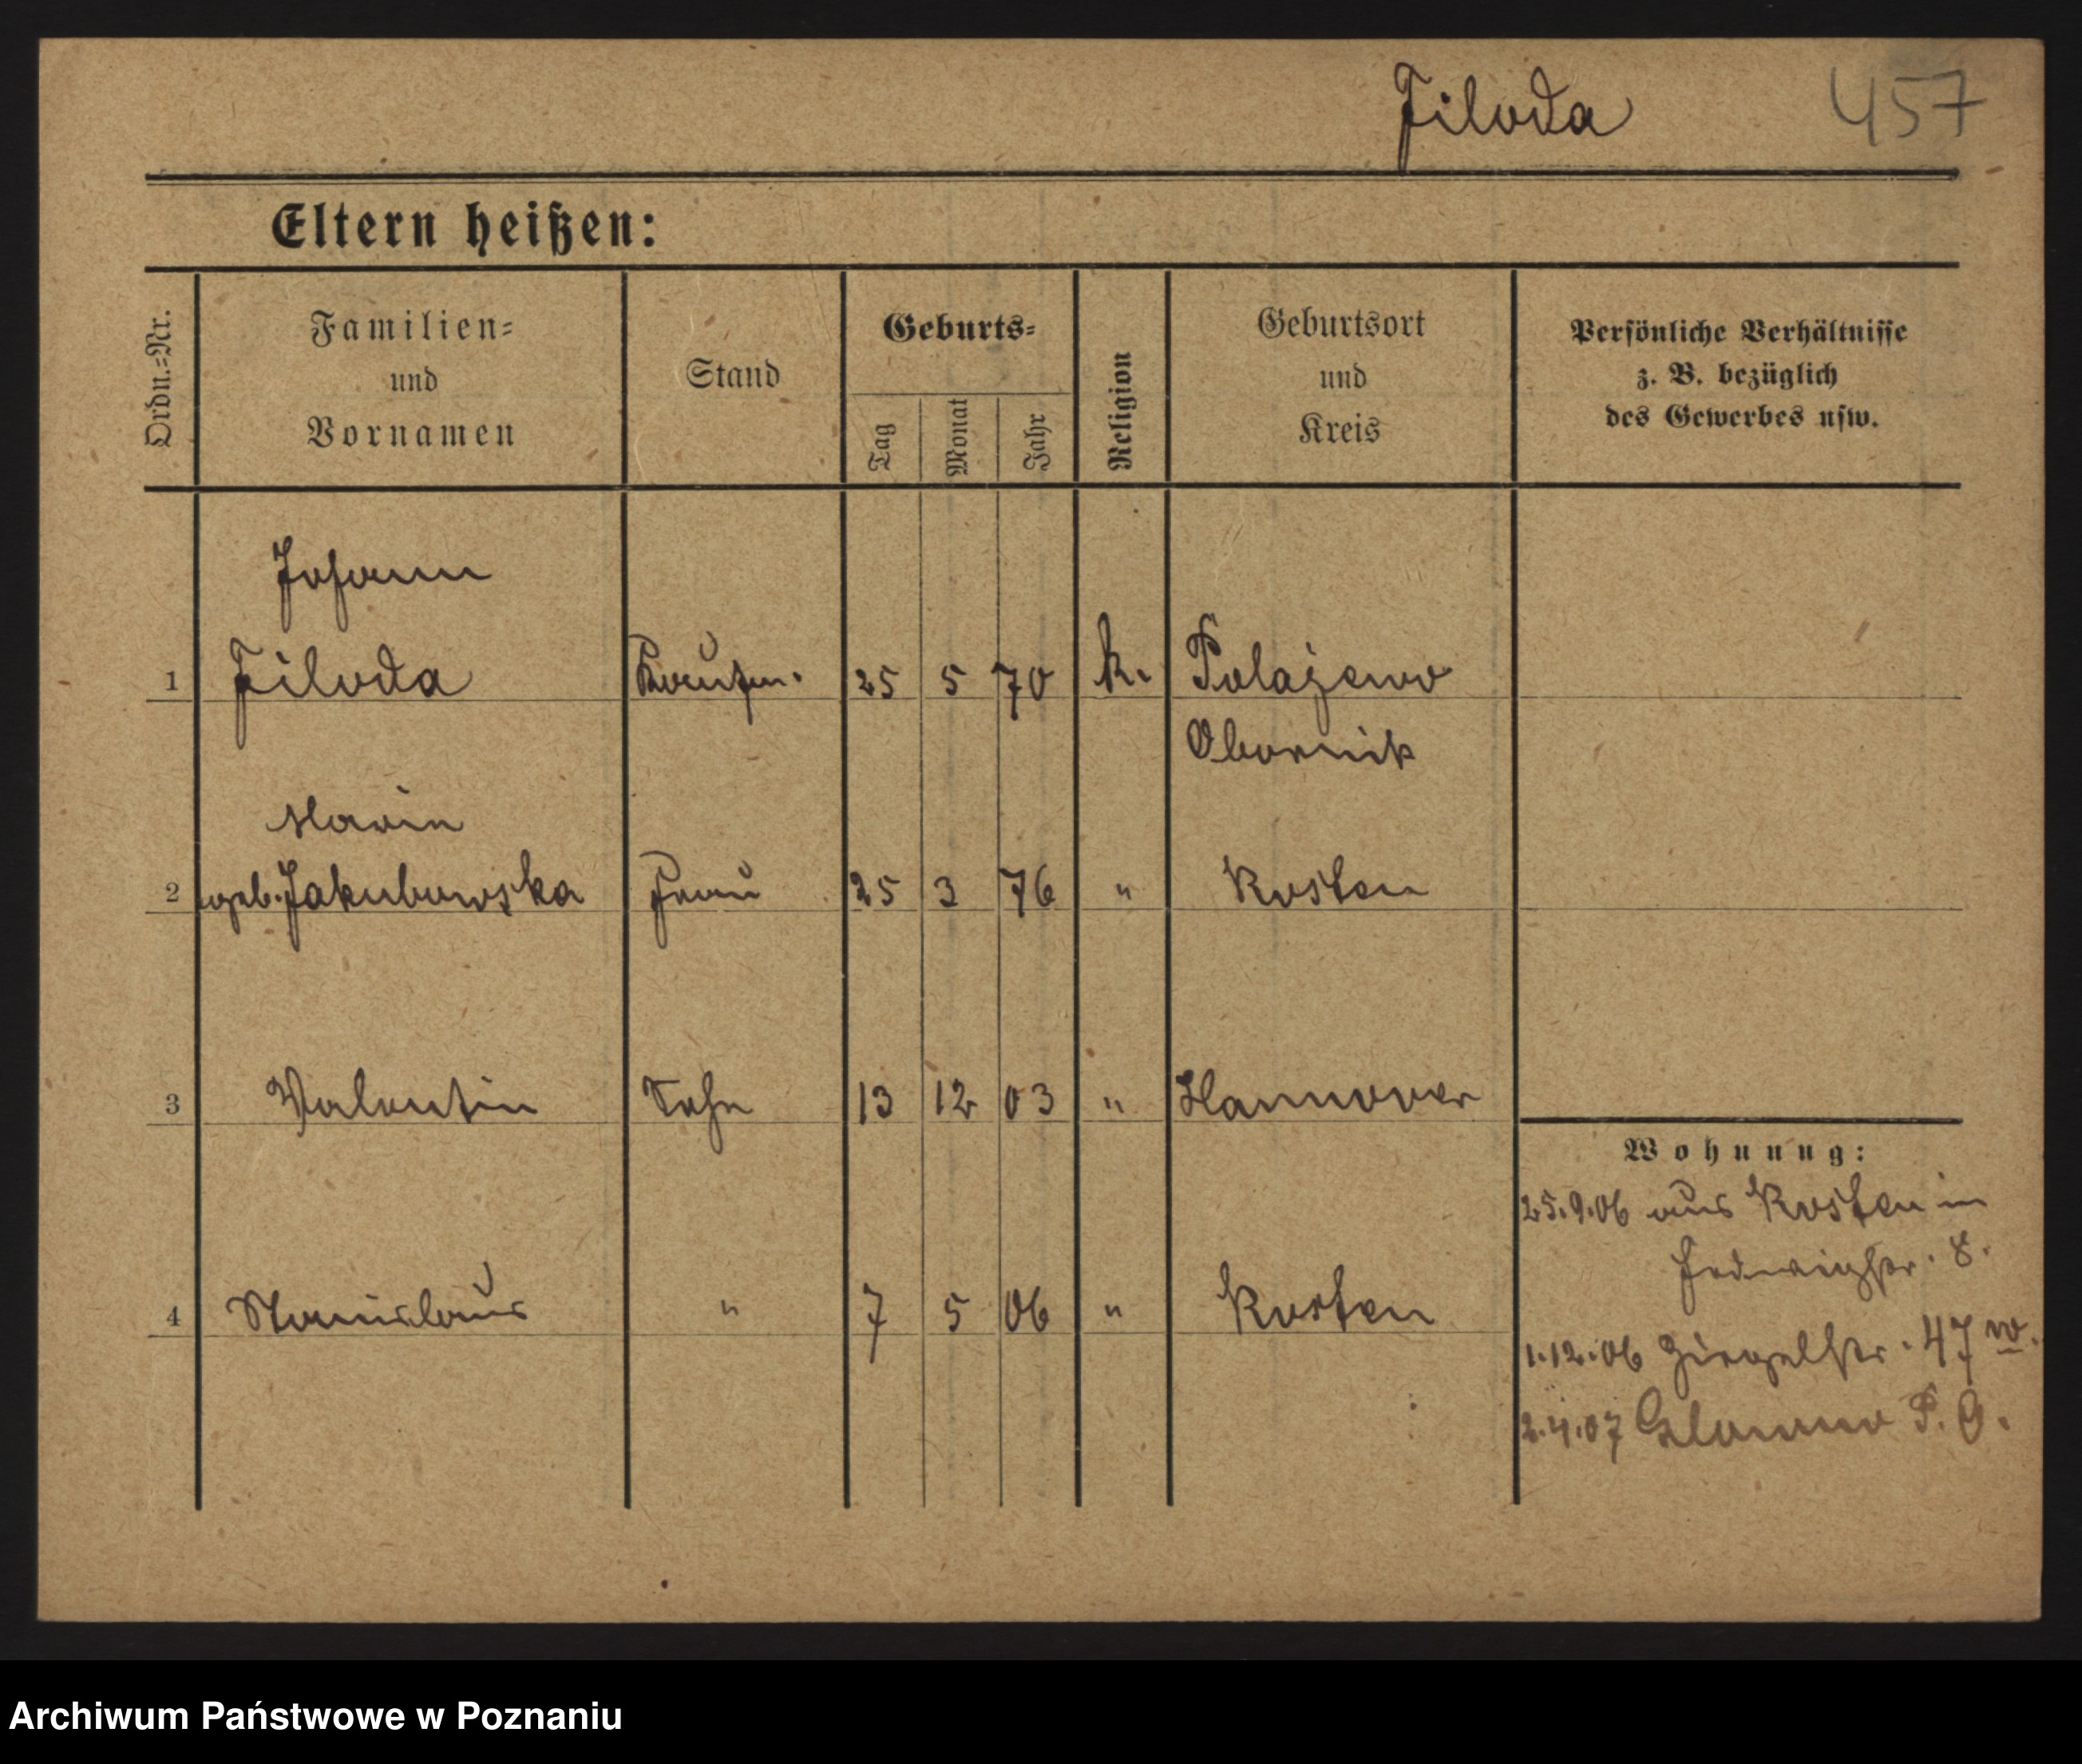 Filoda 457
Eltern heißen:
Ordn.-Nr.
Familien-
und
Vornamen
Stand
Geburts-
Tag
Monat
Jahr
Religion
Geburtsort
und
Kreis
Persönliche Verhältnisse
z. B. bezüglich
des Gewerbes usw.
Johann
1 Filoda 25 5 70 k. Polajewo
Obornik
Marie
2 geb. Jakubowska Frau 25 3 76 " Kosten
3 Valentin Sohn 13 12 03 " Hannover
4 Stanislaus " 7 5 06 " Kosten
Wohnung:
25.9.06 aus Kosten in
Hedwigstr. 8.
1.12.06 47 w.
2.4.07 Glowno P. O.
Archiwum Państwowe w Poznaniu